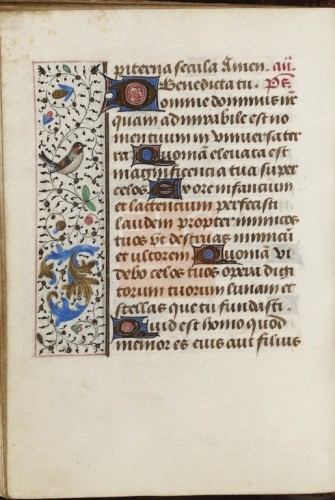 piterna secula Amen. añ.
Benedicta tu. Ps̄.
Domine dominus nr̄
quam admirabile est no
men tuum in vniuersa ter
ra Quoniā eleuata est
magnificencia tua super
celos Ex ore infancium
et lactencium perfecisti
laudem propter inimicos
tuos vt destruas inimicū
et vltorem Quoniam vi
debo celos tuos opera digi
torum tuorum lunam et
stellas que tu fundasti.
Quid est homo quod
memor es eius aut filius